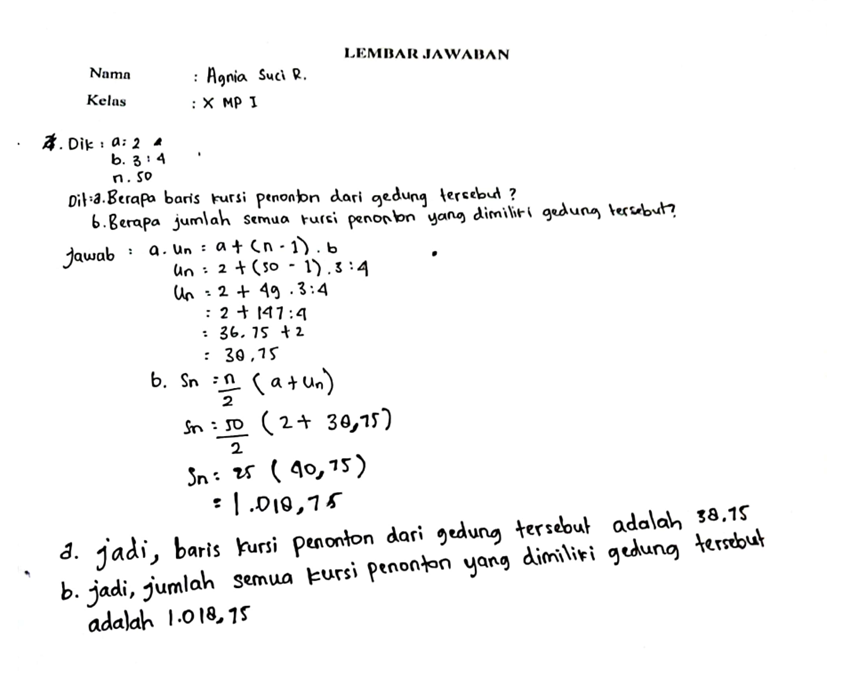 LEMBAR JAWABAN
Nama : Agnia Suci R.
Kelas : X MP I
Dik : a : 2
b. 3 : 4
n. 50
Dit : a. Berapa baris kursi penonton dari gedung tersebut ?
b. Berapa jumlah semua kursi penonton yang dimiliki gedung tersebut?
Jawab : a. Un : a + (n - 1) . b
Un : 2 + (50 - 1) . 3 : 4
Un : 2 + 49 . 3:4
: 2 + 147 : 4
: 36.75 + 2
: 38,75
b. Sn = n/2 (a + Un)
Sn : 50/2 (2 + 38,75)
Sn : 25 (40,75)
= 1.018,75
a. jadi, baris kursi penonton dari gedung tersebut adalah 38.75
b. jadi, jumlah semua kursi penonton yang dimiliki gedung tersebut
adalah 1.018,75